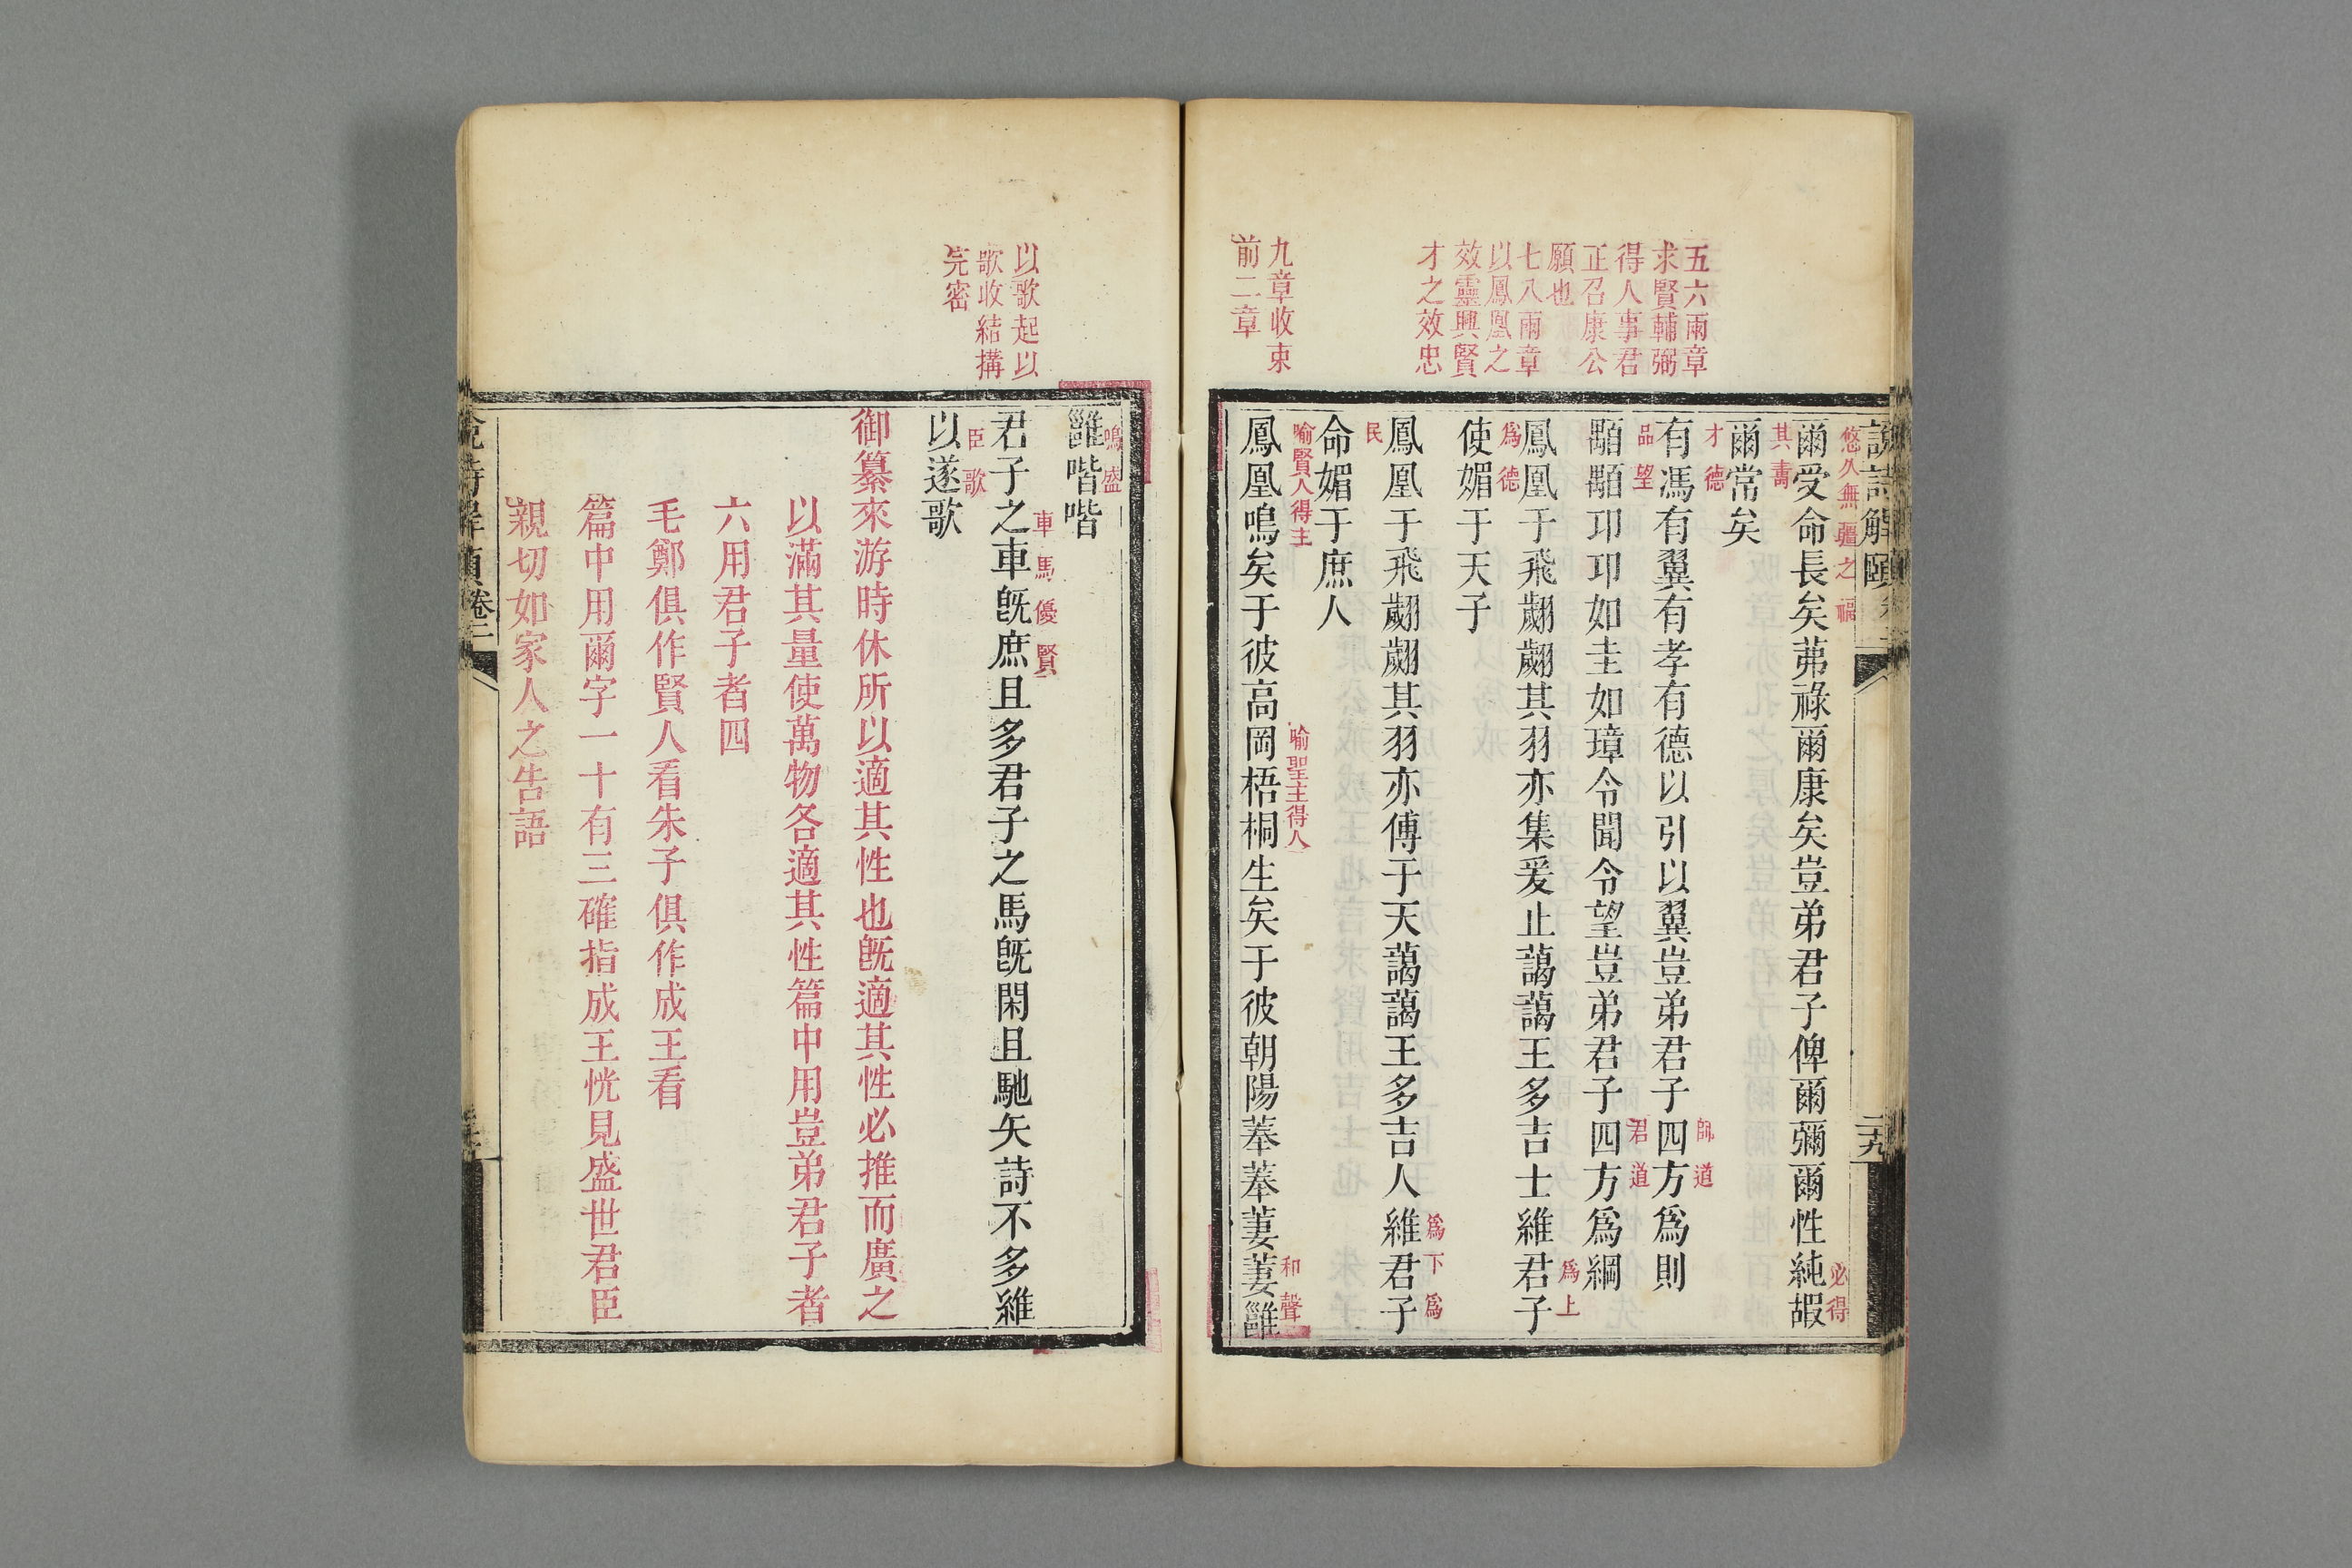 五六兩章
求賢輔弼
得人事君
正召康公
願也
七八兩章
以鳳凰之
效靈興賢
才之效忠
九章收束
前二章
說詩解頤
二十九
悠久無疆之福
必得
爾受命長矣茀祿爾康矣豈弟君子俾爾彌爾性純嘏
其壽
爾常矣
才德
師道
有馮有翼有孝有德以引以翼豈弟君子四方爲則
品望
君道
顒顒卬卬如圭如璋令聞令望豈弟君子四方爲綱
爲上
鳳凰于飛翽翽其羽亦集爰止藹藹王多吉士維君子
爲德
使媚于天子
爲下爲
鳳凰于飛翽翽其羽亦傅于天藹藹王多吉人維君子
民
命媚于庶人
喻賢人得主
喻聖主得人
和聲
鳳凰鳴矣于彼高岡梧桐生矣于彼朝陽菶菶萋萋雝
以歌起以
歌收結搆
完密
鳴盛
雝喈喈
車馬優賢
君子之車旣庶且多君子之馬旣閑且馳矢詩不多維
臣歌
以遂歌
御纂來游時休所以適其性也旣適其性必推而廣之
以滿其量使萬物各適其性篇中用豈弟君子者
六用君子者四
毛鄭俱作賢人看朱子俱作成王看
篇中用爾字一十有三確指成王恍見盛世君臣
親切如家人之告語
卷二